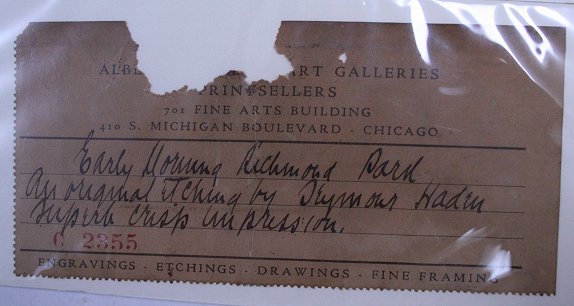 ART GALLERIES
PRINTSELLERS
701 FINE ARTS BUILDING
410 S. MICHIGAN BOULEVARD · CHICAGO
Early Morning Richmond Park
An original etching by Seymour Haden
Superb crisp impression.
C 2355
ENGRAVINGS · ETCHINGS · DRAWINGS · FINE FRAMING